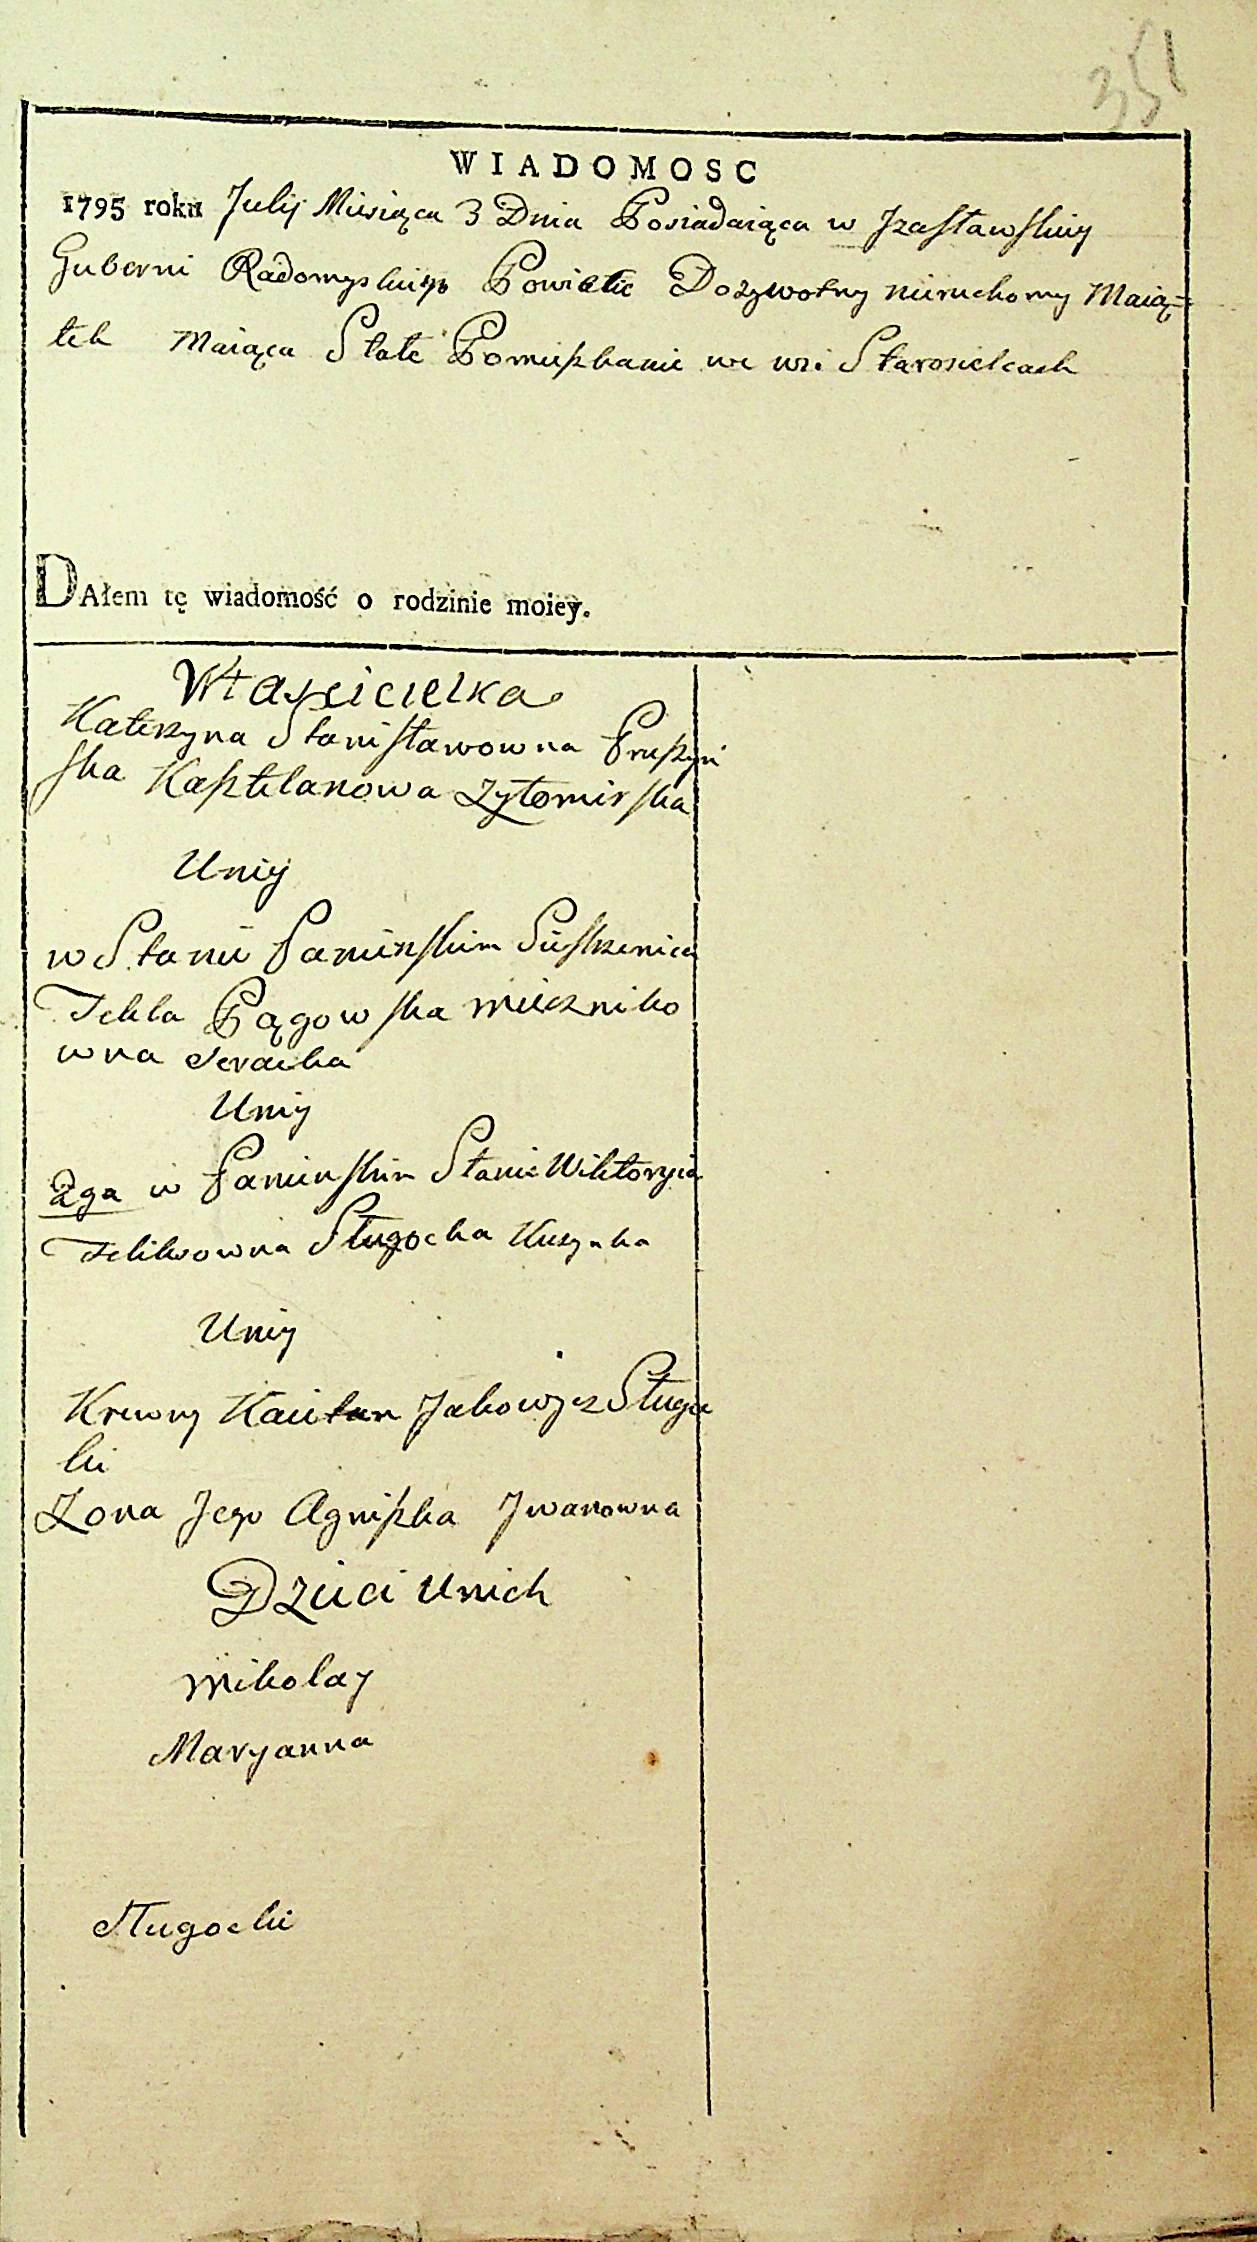 351
WIADOMOSC
1795 roku Julij Miesiąca 3 Dnia Posiadaiąca w Jzasławskiey
Guberni Radomyskiego Powiecie Dozywotny nieruchomy Maią=
tek Maiąca Stałe Pomieszkanie we wsi Starosielcach
DAłem tę wiadomość o rodzinie moiey.
Własicielka
Katerzyna Stanisławowna Pruszyń
ska Kasztelanowa Zytomirska
Uniy
w Stanie Panieńskim Siestrzenica
Tekla Pągowska mieczniko
wna
Uniy
2ga w Panieńskim Stanie Wiktoryia
Felixowna Sługocka Kuzynka
Uniy
Krewny Kaietan Jakowicz Sługoc
ki
Zona Jego Agniszka Jwanowna
Dzieci Unich
Mikolay
Maryanna
Sługocki